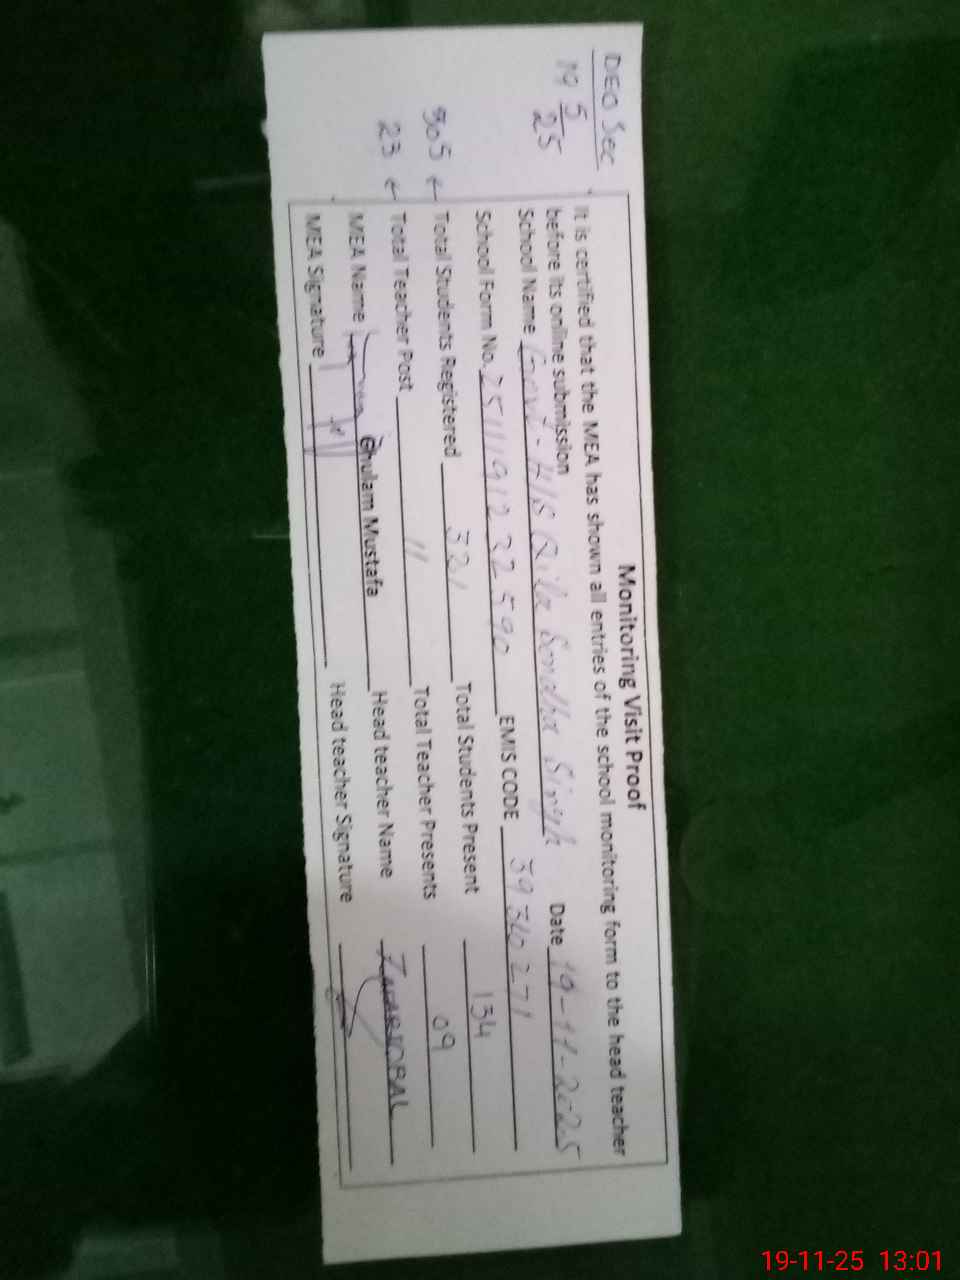 Monitoring Visit Proof
It is certified that the MEA has shown all entries of the school monitoring form to the head teacher
before its online submission
School Name Govt. H/S Qila Sondha Singh Date 19-11-2025
School Form No. EMIS CODE 39310271
Total Students Registered 321 Total Students Present 134
Total Teacher Post 11 Total Teacher Presents 09
MEA Name Ghulam Mustafa Head teacher Name
MEA Signature Head teacher Signature
DEO Sec
19 5/25
305 ←
23 ←
19-11-25 13:01